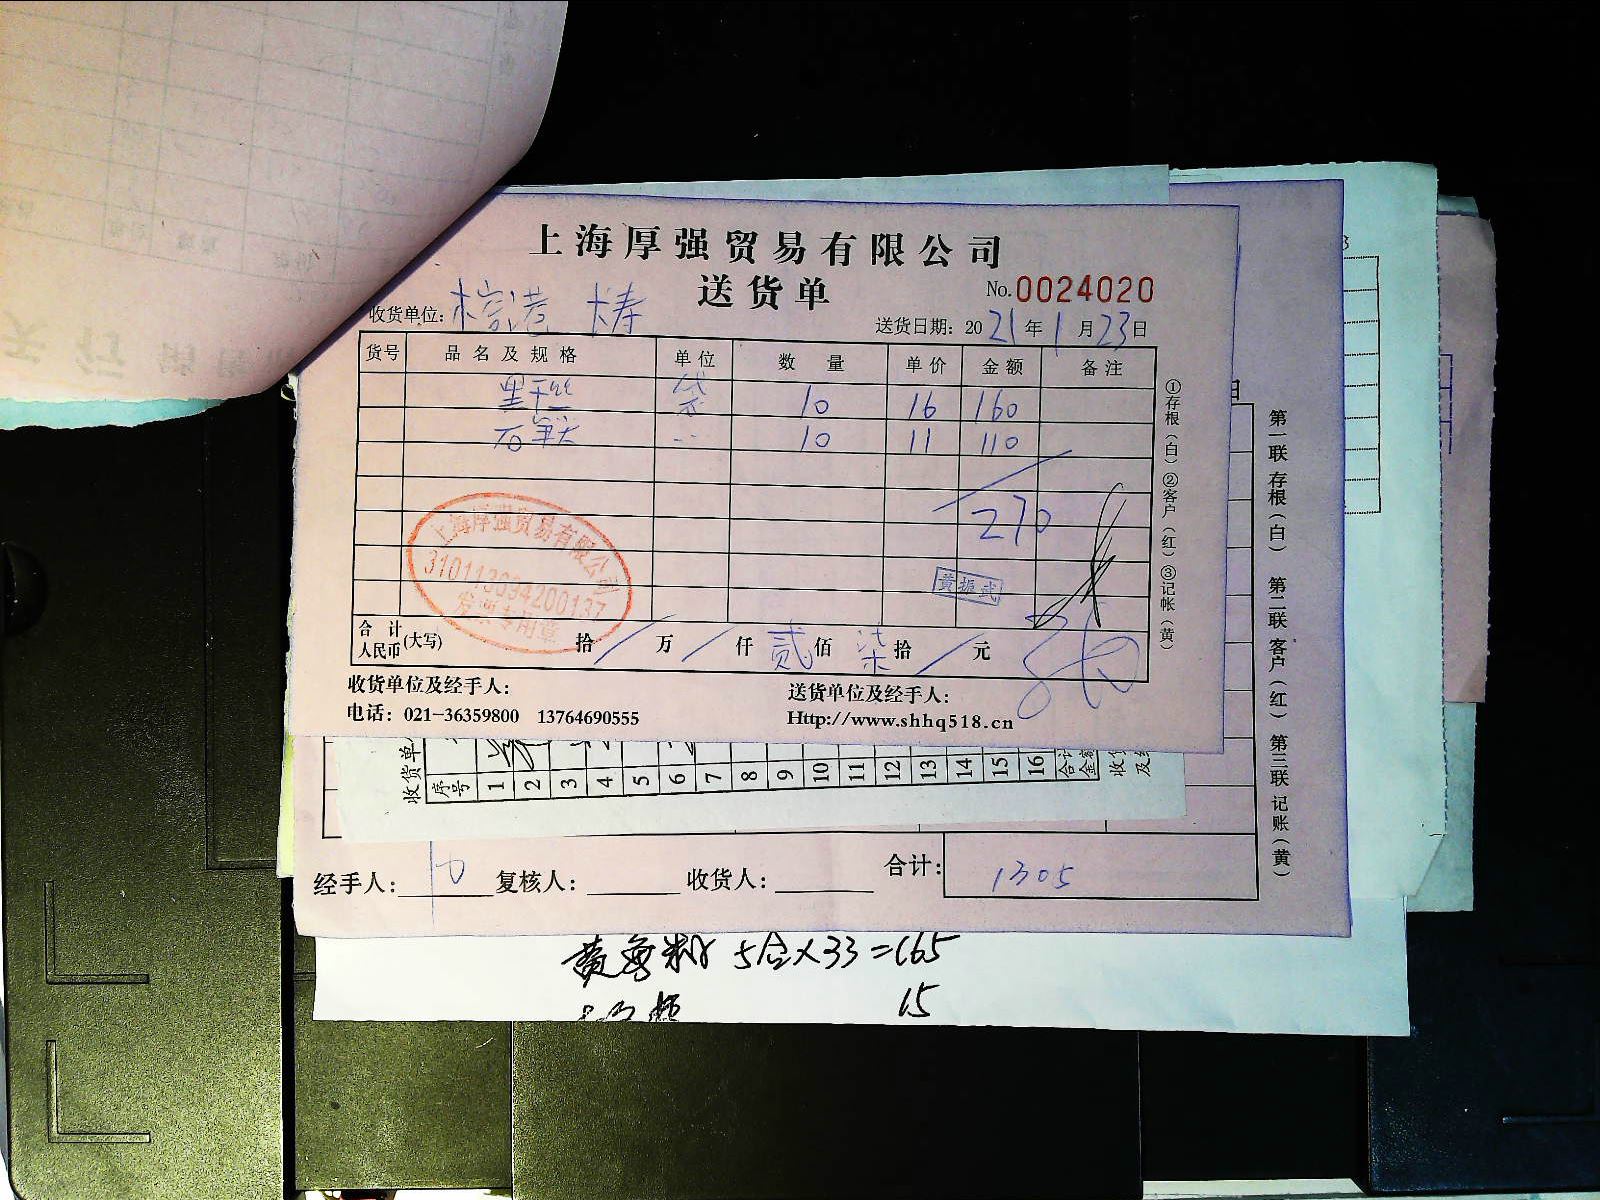 上海厚强贸易有限公司
送货单
No.0024020
收货单位:
送货日期: 2021年1月23日
货号 品名及规格 单位 数量 单价 金额 备注
袋 10 16 160
10 11 110
270
黄振武
上海厚强贸易有限公司
310113094200137
发票专用章
合计人民币(大写) 拾/万/仟贰佰柒拾/元
收货单位及经手人:
送货单位及经手人:
电话: 021-36359800 13764690555
Http://www.shhq518.cn
①存根(白)②客户(红)③记帐(黄)
收货单
序号 1 2 3 4 5 6 7 8 9 10 11 12 13 14 15 16 合计金
收
及
经手人: 复核人: 收货人: 合计: 1305
第一联 存根(白) 第二联 客户(红) 第三联 记账(黄)
5合×33=165
15